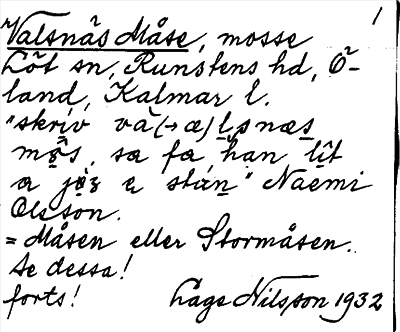 1
Valsnäs Måse, mosse
Löt sn, Runstens hd, Ö-
land, Kalmar l.
"skriv va(→æ)lsnæs
mås, sa fa, han lit
a jøs ę stan" Naemi
Olsson.
= Måsen eller Stormåsen.
Se dessa!
forts! Lage Nilsson 1932